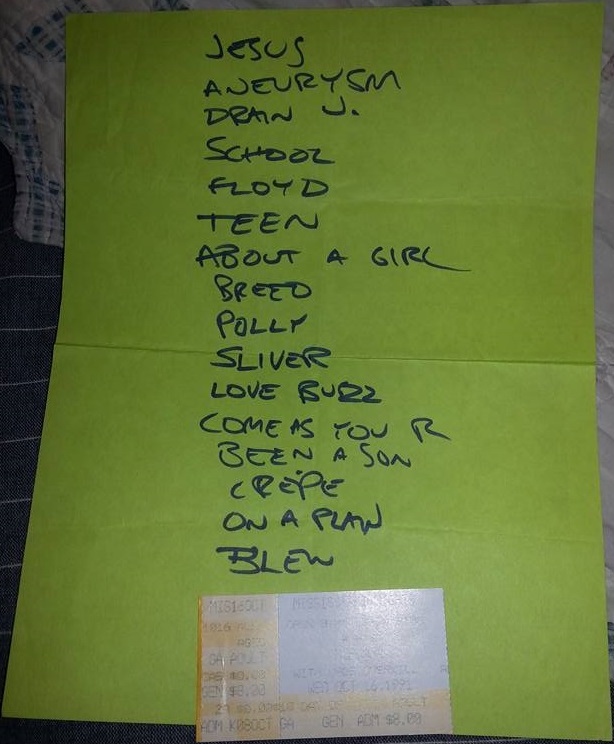 JESUS
ANEURYSM
DRAIN U.
SCHOOL
FLOYD
TEEN
ABOUT A GIRL
BREED
POLLY
SLIVER
LOVE BUZZ
COME AS YOU R
BEEN A SON
CREPE
ON A PLAIN
BLEW
MIS16OCT
GA ADULT
GEN $8.00
WED OCT 16, 1991
ADM K08OCT GA GEN ADM $8.00